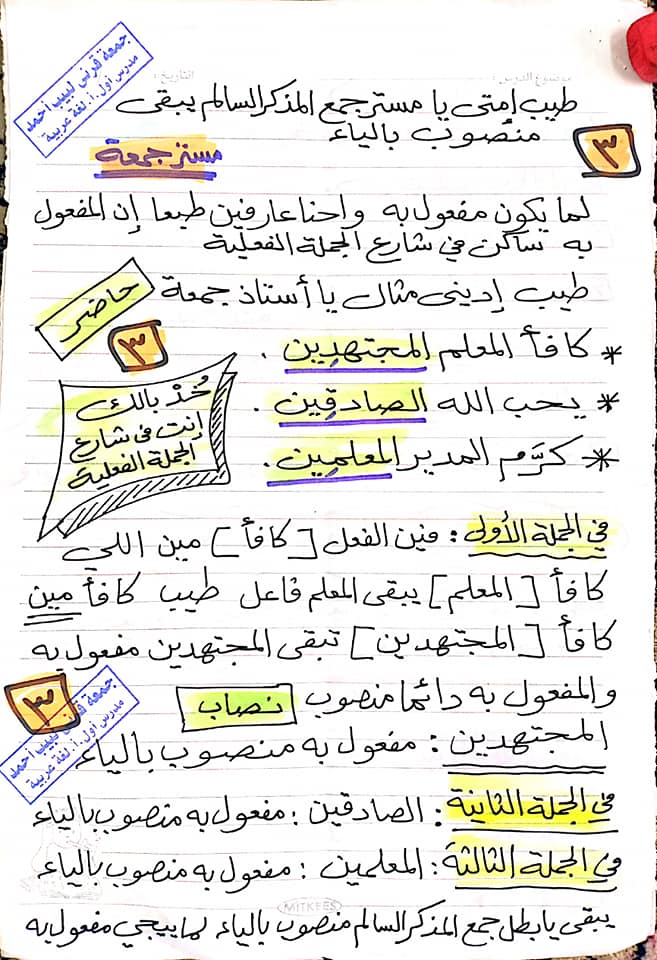 جمعة قرني لبيب أحمد
مدرس أول أ. لغة عربية
موضوع الدرس: التاريخ:
طيب إمتى يا مستر جمع المذكر السالم يبقى
منصوب بالياء
٣
مستر جمعة
لما يكون مفعول به واحنا عارفين طبعا إن المفعول
به ساكن في شارع الجملة الفعلية
طيب إديني مثال يا أستاذ جمعة
حاضر
٣
* كافأ المعلم المجتهدين .
* يحب الله الصادقين .
* كرَّم المدير المعلمين .
خُدْ بالك
إنت في شارع
الجملة الفعلية
في الجملة الأولى : فين الفعل [كافأ] مين اللي
كافأ [المعلم] يبقى المعلم فاعل طيب كافأ مين
كافأ [المجتهدين] تبقى المجتهدين مفعول به
والمفعول به دائما منصوب
نصاب
٣
جمعة قرني لبيب أحمد
مدرس أول أ. لغة عربية
المجتهدين : مفعول به منصوب بالياء
في الجملة الثانية : الصادقين : مفعول به منصوب بالياء
في الجملة الثالثة : المعلمين : مفعول به منصوب بالياء
MITKEES
يبقى يابطل جمع المذكر السالم منصوب بالياء لما بييجي مفعول به